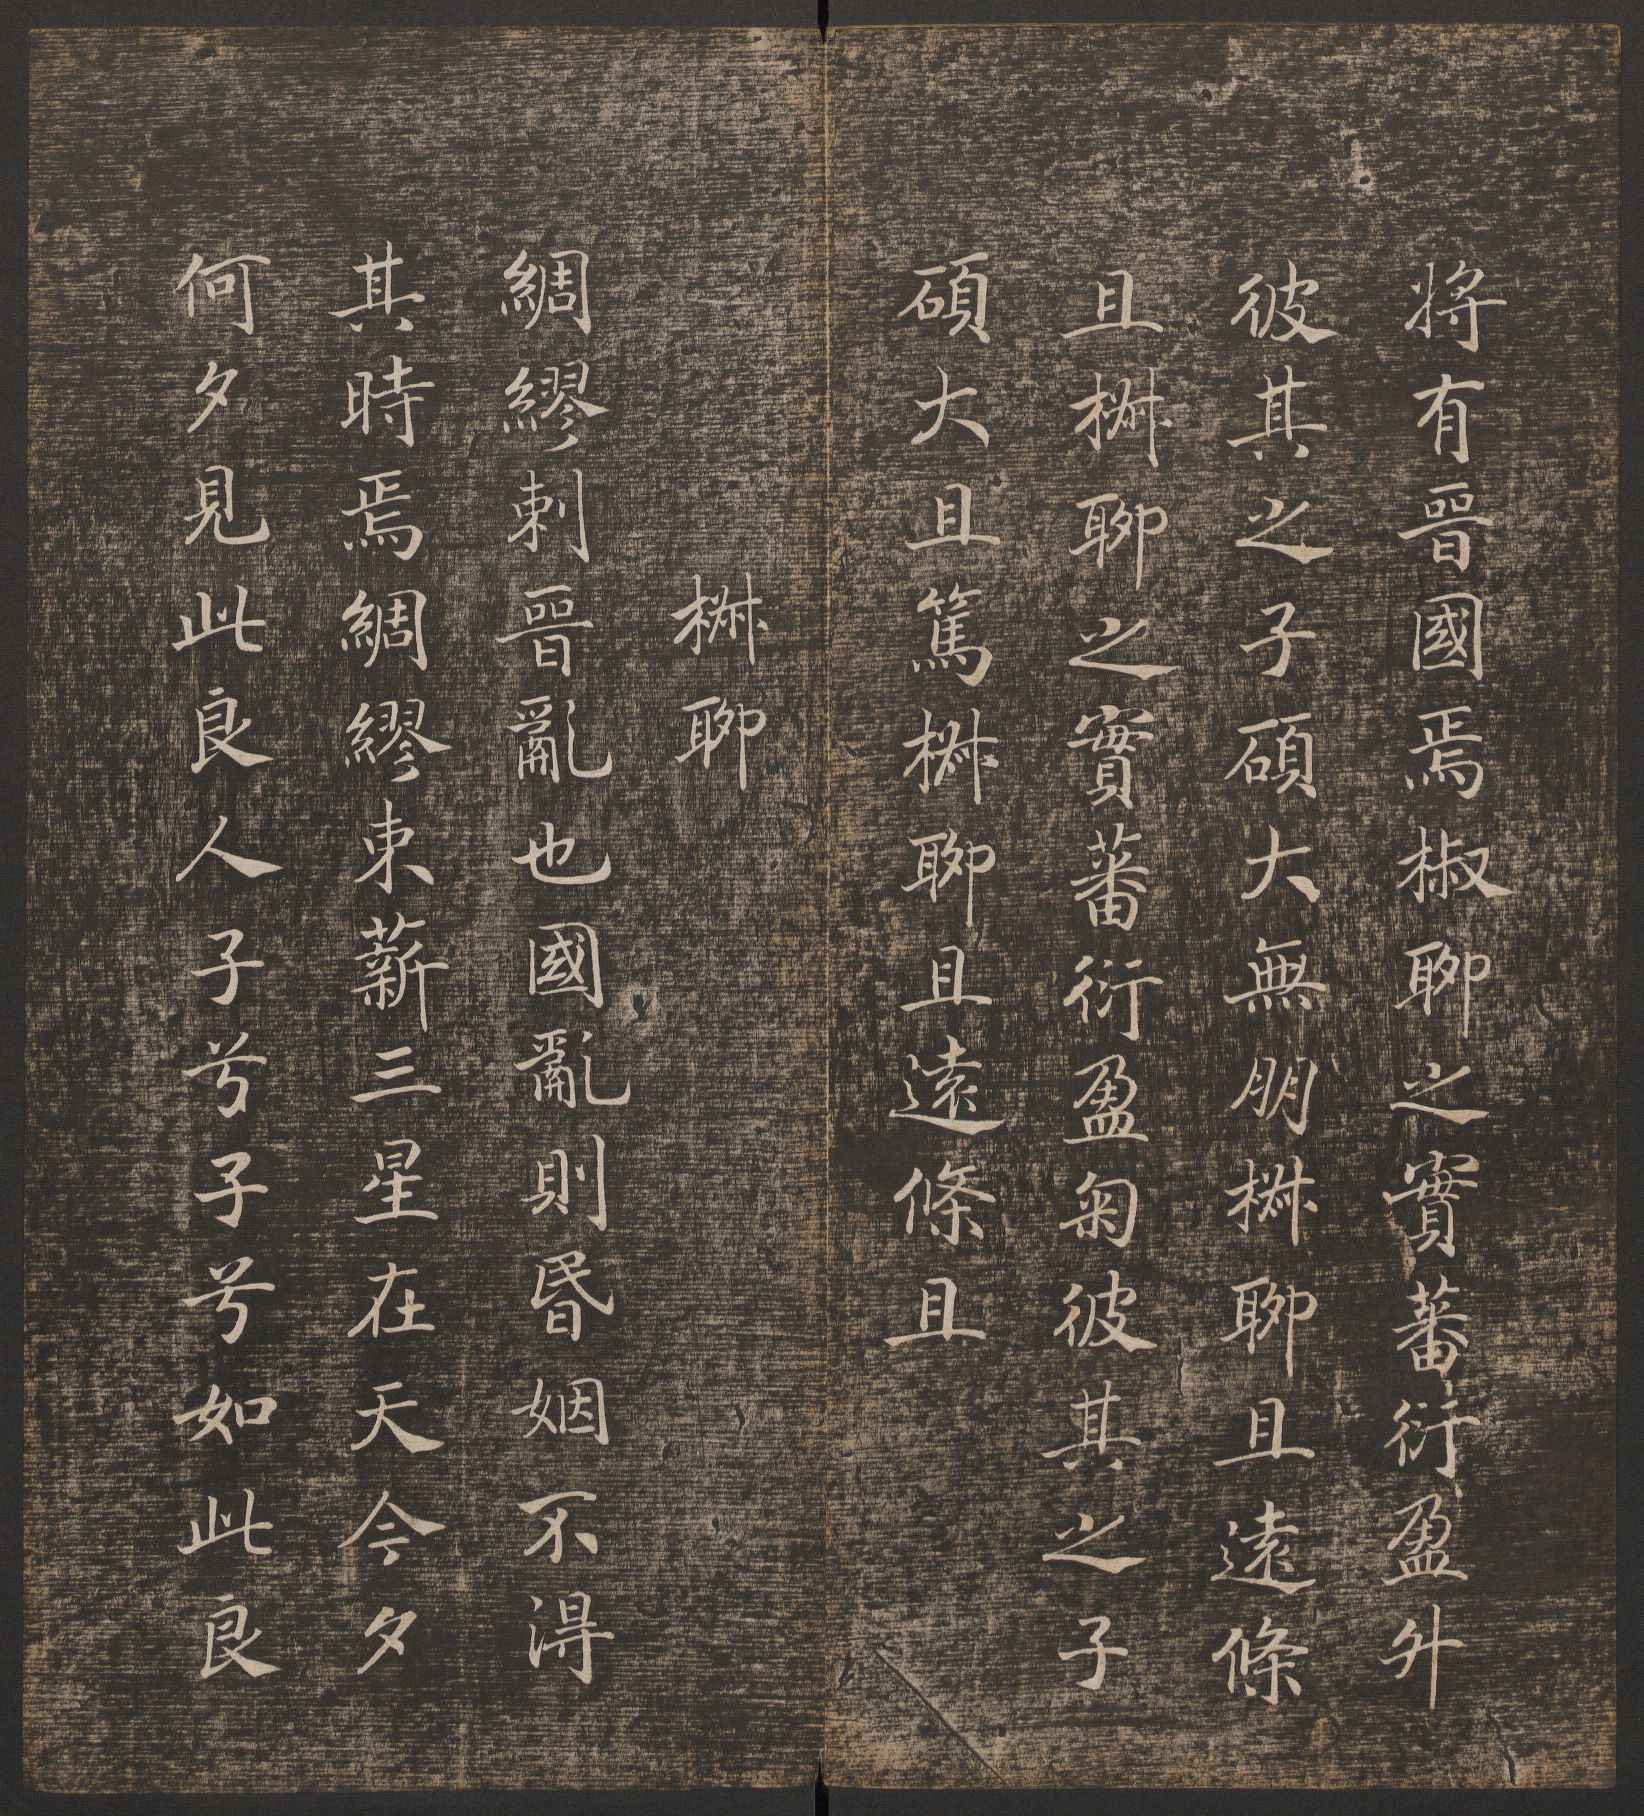 將有晉國焉椒聊之實蕃衍盈升
彼其之子碩大無朋椒聊且遠條
且椒聊之實蕃衍盈匊彼其之子
碩大且篤椒聊且遠條且
椒聊
綢繆刺晉亂也國亂則昏姻不得
其時焉綢繆束薪三星在天今夕
何夕見此良人子兮子兮如此良